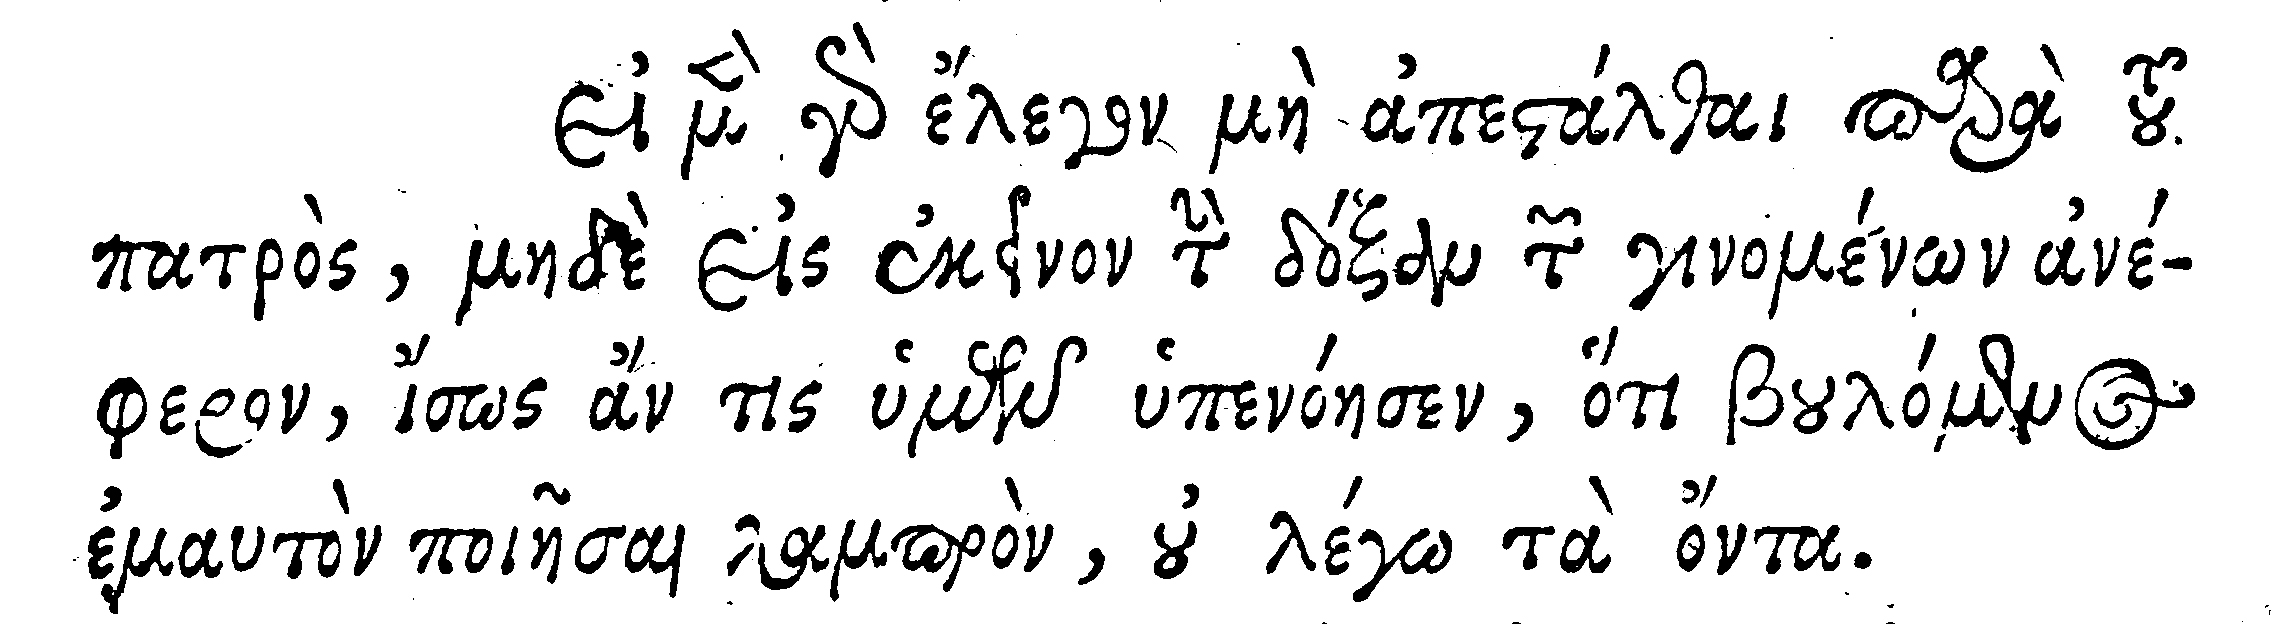 εἰ μὲν γὰρ ἔλεγον μὴ ἀπεστάλθαι παρὰ τοῦ
πατρὸς, μηδὲ εἰς ἐκεῖνον τὴν δόξαν τῶν γινομένων ἀνέ-
φερον, ἴσως ἄν τις ὑμῶν ὑπενόησεν, ὅτι βουλόμενος
ἐμαυτὸν ποιῆσαι λαμπρὸν, οὐ λέγω τὰ ὄντα.